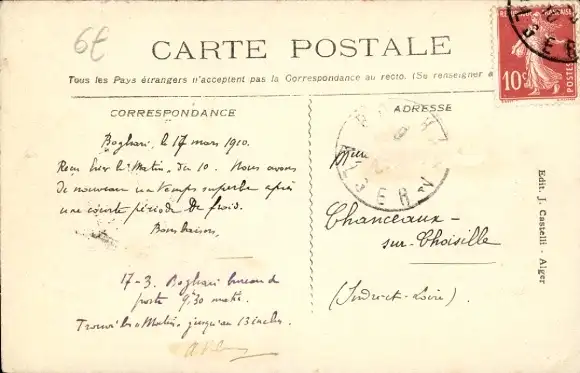 6€
CARTE POSTALE
Tous les Pays étrangers n'acceptent pas la Correspondance au recto. (Se renseigner à
CORRESPONDANCE
Boghari, le 17 mars 1910.
Reçu hier le "Matin" du 10. Nous avons
de nouveau un temps superbe après
une courte période de froid.
Bons baisers,
17-3. Boghari bureau de
poste 9h30 matin.
Trouvé les "Matin" jusqu'au 13 inclus.
ADRESSE
Chanceaux-
sur-Choisille
(Indre-et-Loire).
Edit. J. Castelli - Alger
RÉPUBLIQUE FRANÇAISE
10c
POSTES
ALGER